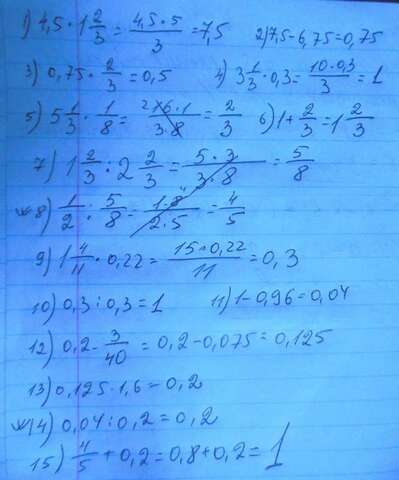 1) 4,5 · 1 2/3 = 4,5 · 5/3 = 7,5 2) 7,5 - 6,75 = 0,75
3) 0,75 · 2/3 = 0,5 4) 3 1/3 · 0,3 = 10 · 0,3/3 = 1
5) 5 1/3 · 1/8 = 16 · 1/3 · 8 = 2/3 6) 1 + 2/3 = 1 2/3
7) 1 2/3 : 2 2/3 = 5 · 3/3 · 8 = 5/8
8) 1/2 : 5/8 = 1 · 8/2 · 5 = 4/5
9) 1 4/11 · 0,22 = 15 · 0,22/11 = 0,3
10) 0,3 : 0,3 = 1 11) 1 - 0,96 = 0,04
12) 0,2 - 3/40 = 0,2 - 0,075 = 0,125
13) 0,125 · 1,6 = 0,2
14) 0,04 : 0,2 = 0,2
15) 4/5 + 0,2 = 0,8 + 0,2 = 1